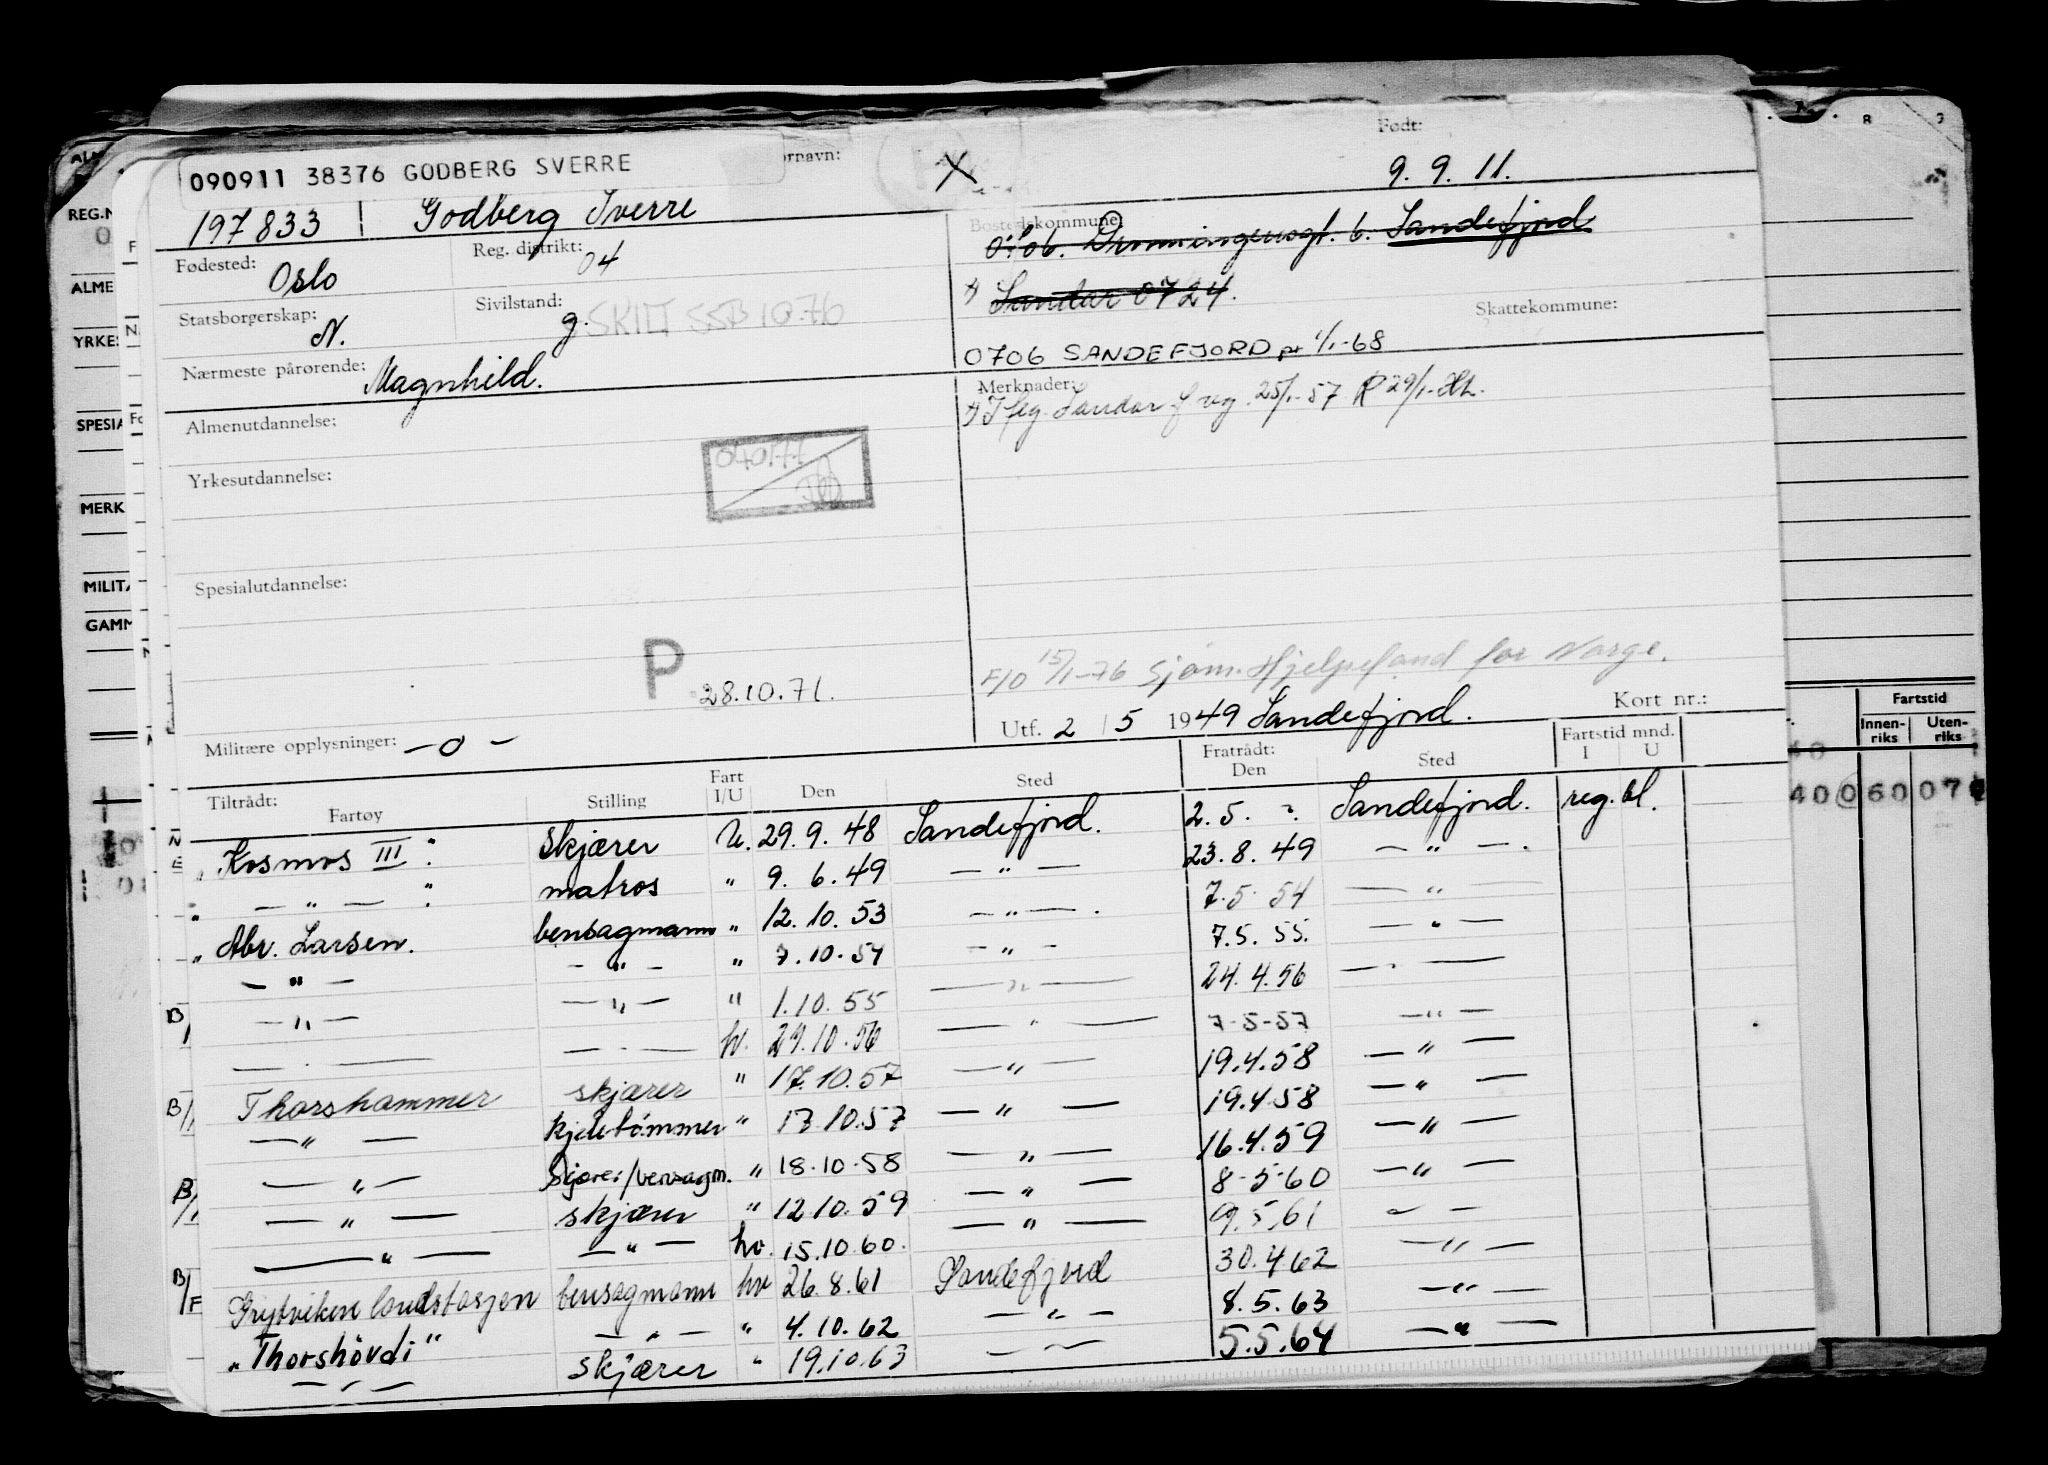 090911 38376 GODBERG SVERRE
ornavn:
X
Født:
9. 9. 11.
197833 Godberg Sverre
Bostedskommune:
0706. Dronningensgt. 6. Sandefjord
Fødested: Oslo
Reg. distrikt: 04
x) Sandar 0724.
Statsborgerskap: N.
Sivilstand: g.
SKILT SSB 10.76
Skattekommune:
0706 SANDEFJORD pr 1/1-68
Nærmeste pårørende: Magnhild.
Merknader:
25/1-57 R 29/1-
Almenutdannelse:
040177
Yrkesutdannelse:
Spesialutdannelse:
P 28.10.71.
F/O 15/1-76 Sjøm. Hjelpefond for Norge.
Utf. 2 / 5 1949 Sandefjord.
Kort nr.:
Militære opplysninger: -o-
Tiltrådt:
Fartøy Stilling Fart I/U Den Sted Fratrådt: Den Sted Fartstid mnd. I U
Kosmos III skjærer U. 29.9.48 Sandefjord. 2.5. Sandefjord. reg. bl.
— " — matros " 9.6.49 — " — 23.8.49 — " —
Abr. Larsen. bensagmann " 12.10.53 — " — 7.5.54 — " —
— " — — " — " 7.10.54 — " — 7.5.55. — " —
B/ — " — — " — " 1.10.55 — " — 24.4.56 — " —
— " — — " — hv. 29.10.56 — " — 7-5-57 — " —
B/ Thorshammer skjærer " 17.10.57 — " — 19.4.58 — " —
— " — kjeletømmer " 17.10.57 — " — 19.4.58 — " —
— " — Skjærer/bensagm. " 18.10.58 — " — 16.4.59 — " —
B/ — " — skjærer " 12.10.59 — " — 8-5-60 — " —
— " — — " — hv. 15.10.60. — " — 9.5.61 — " —
B/F Grytviken landstasjon bensagmann hv 26.8.61 Sandefjord 30.4.62 — " —
"Thorshövdi" — " — " 4.10.62 — " — 8.5.63 — " —
— " — skjærer " 19.10.63 — " — 5.5.64 — " —
REG.N
ALME
YRKES
SPESIA
MERK
MILITÆ
GAMM
Fartstid
Innen-riks
Uten-riks
40 060 07